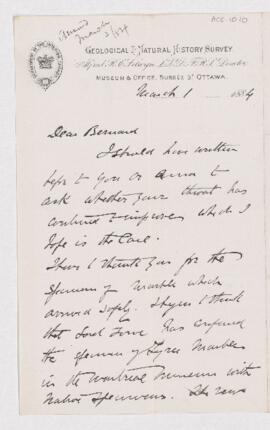 ACC-1010
GEOLOGICAL & NATURAL HISTORY SURVEY.
Alfred R. C. Selwyn L.L.D. F.R.S. Director
MUSEUM & OFFICE, SUSSEX ST OTTAWA.
March 1 1884
Dear Bernard
I should have written
before to you or to
ask whether your throat has
continued to improve which I
hope is the case.
I have to thank you for the
specimens of marble which
arrived safely. I think
that Lord Lorne has confused
the specimen of Tyree Marble
in the Montreal Museum with
Native specimens.